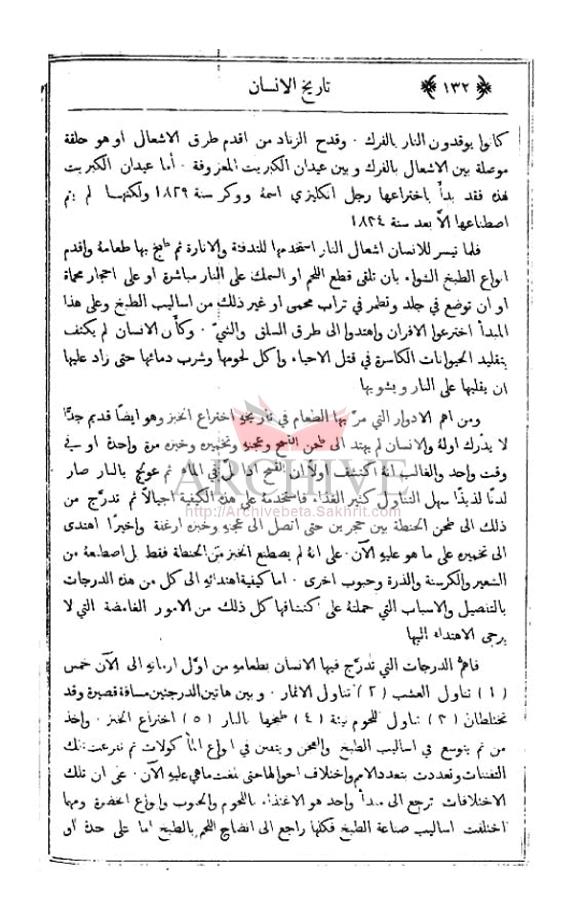 ﴿ ١٣٢ ﴾
تاريخ الانسان
كانوا يوقدون النار بالفرك · وقدح الزناد من اقدم طرق الاشعال او هو حلقة
موصلة بين الاشعال بالفرك وبين عيدان الكبريت المعروفة · أما عيدان الكبريت
هذه فقد بدأ باختراعها رجل انكليزي اسمهُ ووكر سنة ١٨٢٩ ولكنها لم يتم
اصطناعها الّا بعد سنة ١٨٣٤
فلما تيسر للانسان اشعال النار استخدمها للتدفئة والانارة ثم طبخ بها طعامهُ واقدم
انواع الطبخ الشواء بان تلقى قطع اللحم او السمك على النار مباشرة او على احجار محماة
او ان توضع في جلد وتطمر في تراب محمى او غير ذلك من اساليب الطبخ وعلى هذا
المبدأ اخترعوا الافران واهتدوا الى طرق السلق والقلي · وكأن الانسان لم يكتف
بتقليد الحيوانات الكاسرة في قتل الاحياء واكل لحومها وشرب دمائها حتى زاد عليها
ان يقلبها على النار ويشويها
ومن اهم الادوار التي مرّ بها الطعام في تاريخهِ اختراع الخبز وهو ايضاً قديم جدًّا
لا يدرك اولهُ والانسان لم يهتد الى طحن القمح وعجنهِ وتخميرهِ وخبزهِ مرة واحدة او في
وقت واحد والغالب انهُ اكتشف اولاً ان القمح اذا بل في الماء ثم عولج بالنار صار
لدنًا لذيذًا سهل التناول كثير الغذاء فاستخدمهُ على هذه الكيفية اجيالاً ثم تدرج من
ذلك الى طحن الحنطة بين حجرين حتى اتصل الى عجنهِ وخبزهِ ارغفة واخيرًا اهتدى
الى تخميرهِ على ما هو عليهِ الآن · على انهُ لم يصطنع الخبز من الحنطة فقط بل اصطنعهُ من
الشعير والكرسنة والذرة وحبوب اخرى · اما كيفية اهتدائهِ الى كل من هذه الدرجات
بالتفصيل والاسباب التي حملتهُ على اكتشافها كل ذلك من الامور الغامضة التي لا
يرجى الاهتداء اليها
فاهمّ الدرجات التي تدرّج فيها الانسان بطعامهِ من اوّل ازمانهِ الى الآن خمس
(١) تناول العشب (٢) تناول الاثمار · وبين هاتين الدرجتين مسافة قصيرة وقد
تختلطان (٣) تناول اللحوم نيئة (٤) طبخها بالنار (٥) اختراع الخبز · واخذ
من ثم يتوسع في اساليب الطبخ والعجن ويتفنن في انواع المأكولات ثم تفرعت تلك
التفننات وتعددت بتعدد الامم واختلاف احوالها حتى بلغت ما هي عليهِ الآن · على ان تلك
الاختلافات ترجع الى مبدأ واحد هو الاغتذاء باللحوم والحبوب وانواع الخضرة ومهما
اختلفت اساليب صناعة الطبخ فكلها راجع الى انضاج اللحم بالطبخ اما على حدة او
ARCHIVE
http://Archivebeta.Sakhrit.com